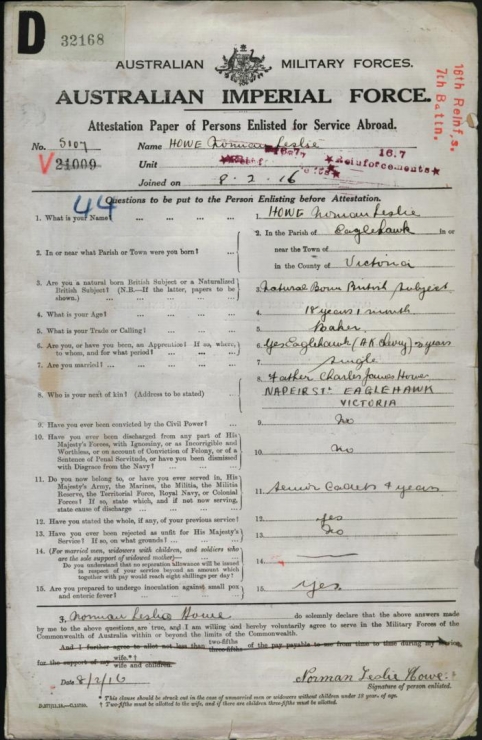 D 32168
AUSTRALIAN MILITARY FORCES.
AUSTRALIAN IMPERIAL FORCE.
16th Reinf's.
7th Battn.
Attestation Paper of Persons Enlisted for Service Abroad.
No. 5107 Name HOWE Norman Leslie
V 21009 Unit 16.7 Reinforcements
Joined on 8.2.16
44
Questions to be put to the Person Enlisting before Attestation.
1. What is your Name? ... ... ... 1. HOWE Norman Leslie
2. In or near what Parish or Town were you born? ... 2. In the Parish of Eaglehawk in or
near the Town of
in the County of Victoria
3. Are you a natural born British Subject or a Naturalized
British Subject? (N.B.—If the latter, papers to be
shown.) ... 3. Natural Born British Subject
4. What is your Age? ... 4. 18 years 1 month
5. What is your Trade or Calling? ... 5. Baker
6. Are you, or have you been, an Apprentice? If so, where,
to whom, and for what period? ... 6. Yes Eaglehawk (A K Chevy) 2 years
7. Are you married? ... 7. Single
8. Who is your next of kin? (Address to be stated) ... 8. Father Charles James Howe
NAPEIR ST. EAGLEHAWK
VICTORIA
9. Have you ever been convicted by the Civil Power? ... 9. No
10. Have you ever been discharged from any part of His
Majesty's Forces, with Ignominy, or as Incorrigible and
Worthless, or on account of Conviction of Felony, or of a
Sentence of Penal Servitude, or have you been dismissed
with Disgrace from the Navy? ... 10. No
11. Do you now belong to, or have you ever served in, His
Majesty's Army, the Marines, the Militia, the Militia
Reserve, the Territorial Force, Royal Navy, or Colonial
Forces? If so, state which, and if not now serving,
state cause of discharge ... 11. Senior Cadets 4 years
12. Have you stated the whole, if any, of your previous service? 12. yes
13. Have you ever been rejected as unfit for His Majesty's
Service? If so, on what grounds? ... 13. No
14. (For married men, widowers with children, and soldiers who
are the sole support of widowed mother)—
Do you understand that no separation allowance will be issued
in respect of your service beyond an amount which
together with pay would reach eight shillings per day? 14.
15. Are you prepared to undergo inoculation against small pox
and enteric fever? ... 15. Yes.
I, Norman Leslie Howe do solemnly declare that the above answers made
by me to the above questions are true, and I am willing and hereby voluntarily agree to serve in the Military Forces of the
Commonwealth of Australia within or beyond the limits of the Commonwealth.
And I further agree to allot not less than two-fifths
three-fifths of the pay payable to me from time to time during my service,
for the support of my wife.*†
wife and children.
Date 8/2/16 Norman Leslie Howe
Signature of person enlisted.
* This clause should be struck out in the case of unmarried men or widowers without children under 18 years of age.
† Two-fifths must be allotted to the wife, and if there are children three-fifths must be allotted.